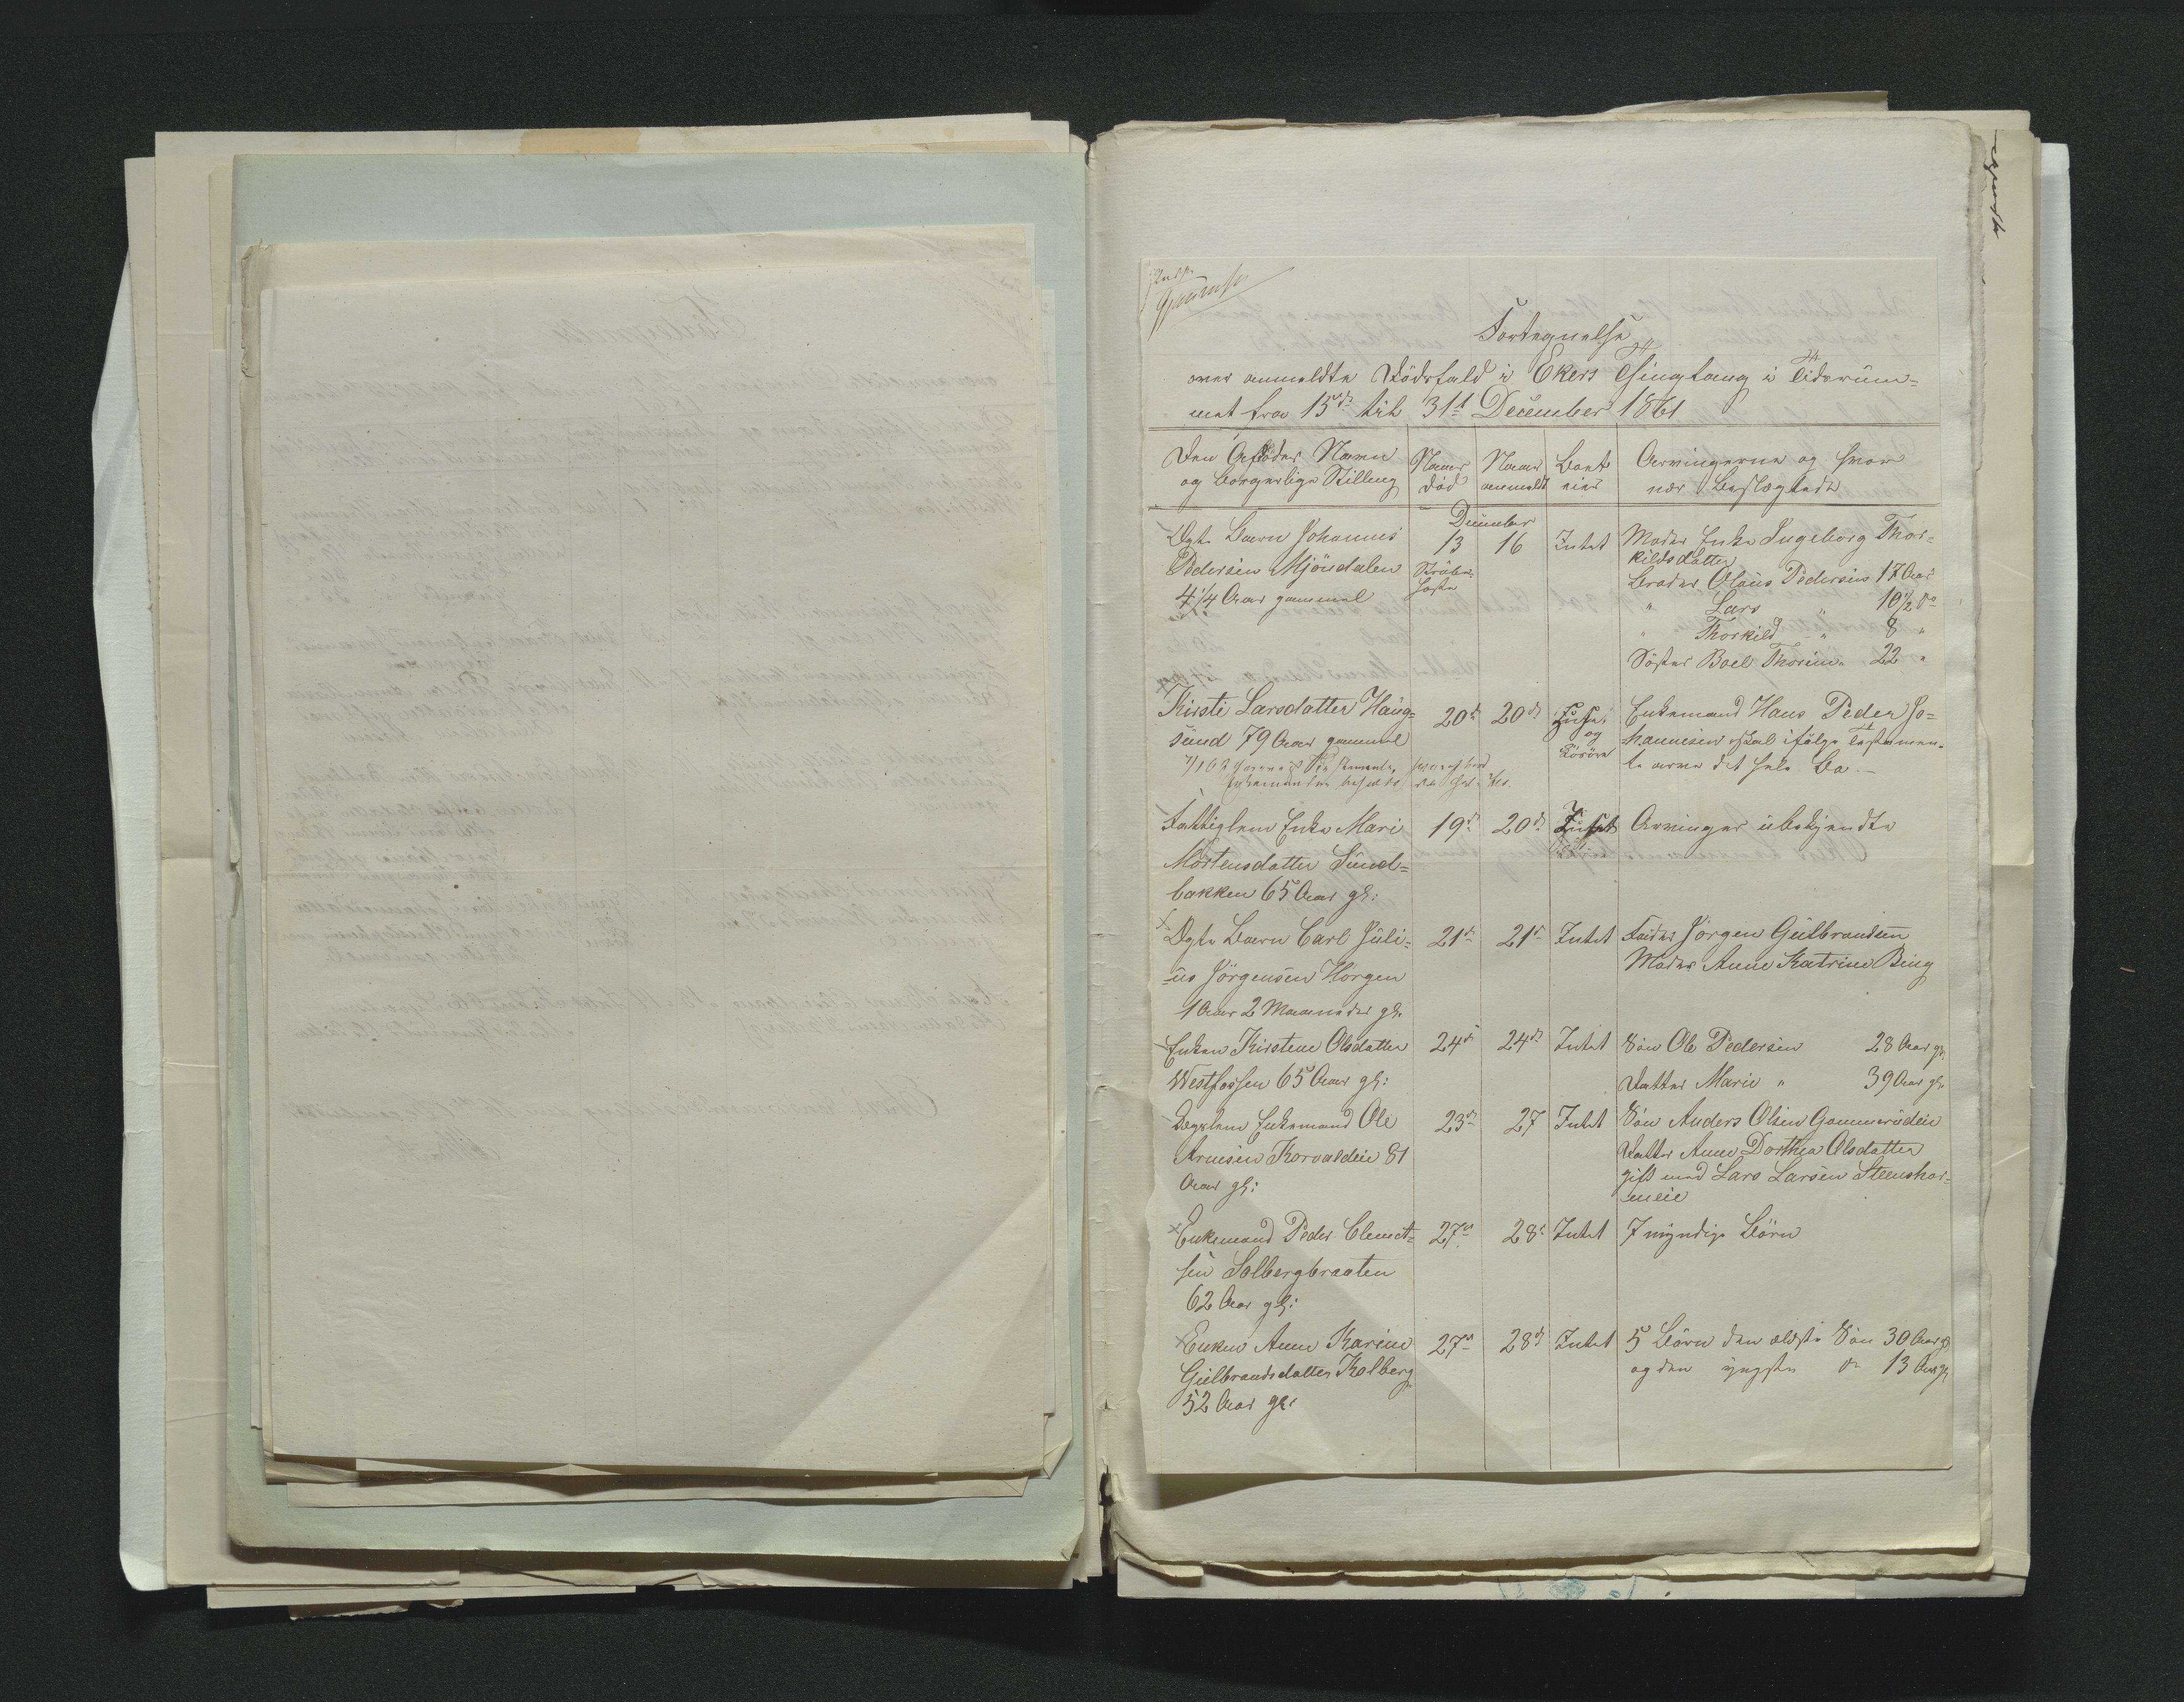 Fortegnelse
over anmeldte Dödsfald i Ekers Thinglaug i Tidsrüm=
met fra 15de til 31t December 1861
Den Afdödes Navn
og borgerlige Stilling
Naar
död
Naar
anmeldt
Boet
eier
Arvingerne og hvor
nær Beslægtede
December
Ægte Barn Johannes
Pedersen Mjöndalen
4 1/4 Aar gammel
13
Strube
hoste
16
Intet
Moder Enke Ingeborg Thor=
kildsdatter
Broder Olaus Pedersen 17 Aar
" Lars " 10 1/2 do
" Thorkild " 8 "
Söster Boel Thorine 22 "
Kirsti Larsdatter Haug=
sund 79 Aar gammel
20de
20de
og
Enkemand Hans Peder Jo=
hannesen skal ifölge Testamen=
te arve det hele Bo.
Fattiglem Enke Mari
Mortensdatter Sünd=
bakken 65 Aar gl:
19de
20de
Intet
Arvinger übekjendte
Ægte Barn Carl Jüli=
us Jörgensen Horgen
1 Aar 2 Maaneder gl.
21de
21de
Intet
Fader Jörgen Gülbrandsen
Moder Anne Katrine Bing
Enken Kirstine Olsdatter
Westfossen 65 Aar gl:
24de
24de
Intet
Sön Ole Pedersen 28 Aar gl.
Datter Marie " 39 Aar gl.
Lægslem Enkemand Ole
Arnesen Korvaldeie 81
Aar gl:
23de
27
Intet
Sön Anders Olsen Gommerüdeie
Datter Anne Dorthea Olsdatter
gift med Lars Larsen Steenshor=
neeie
Enkemand Peder Clemet=
sen Solbergbraaten
62 Aar gl:
27de
28de
Intet
7 myndige Börn
Enken Anne Karine
Gülbrandsdatter Kolberg
52 Aar gl:
27de
28de
Intet
5 Börn den ældste Sön 30 Aar gl
og den yngste do 13 Aar gl